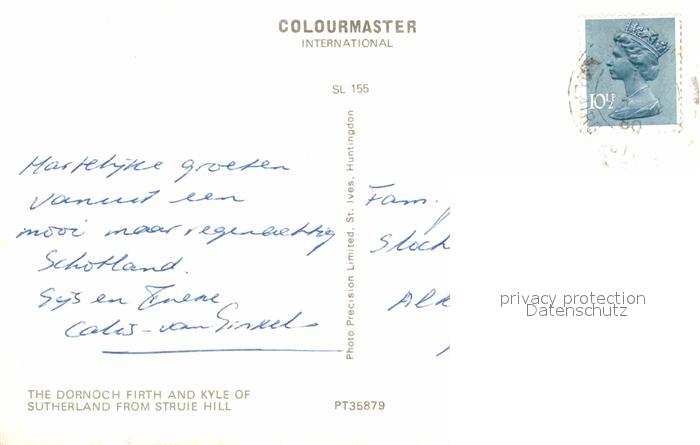 COLOURMASTER
INTERNATIONAL
SL 155
10½P
Hartelijke groeten
vanuit een
mooi maar regenachtig
Schotland.
Gijs en Irene
Calis-van Ginkel
Photo Precision Limited, St. Ives, Huntingdon
Fam.
Sloch
Alk
privacy protection
Datenschutz
THE DORNOCH FIRTH AND KYLE OF
SUTHERLAND FROM STRUIE HILL
PT35879